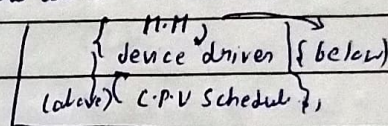 { M.M,
device driver } { below)
(above) { C.P.U Schedul },